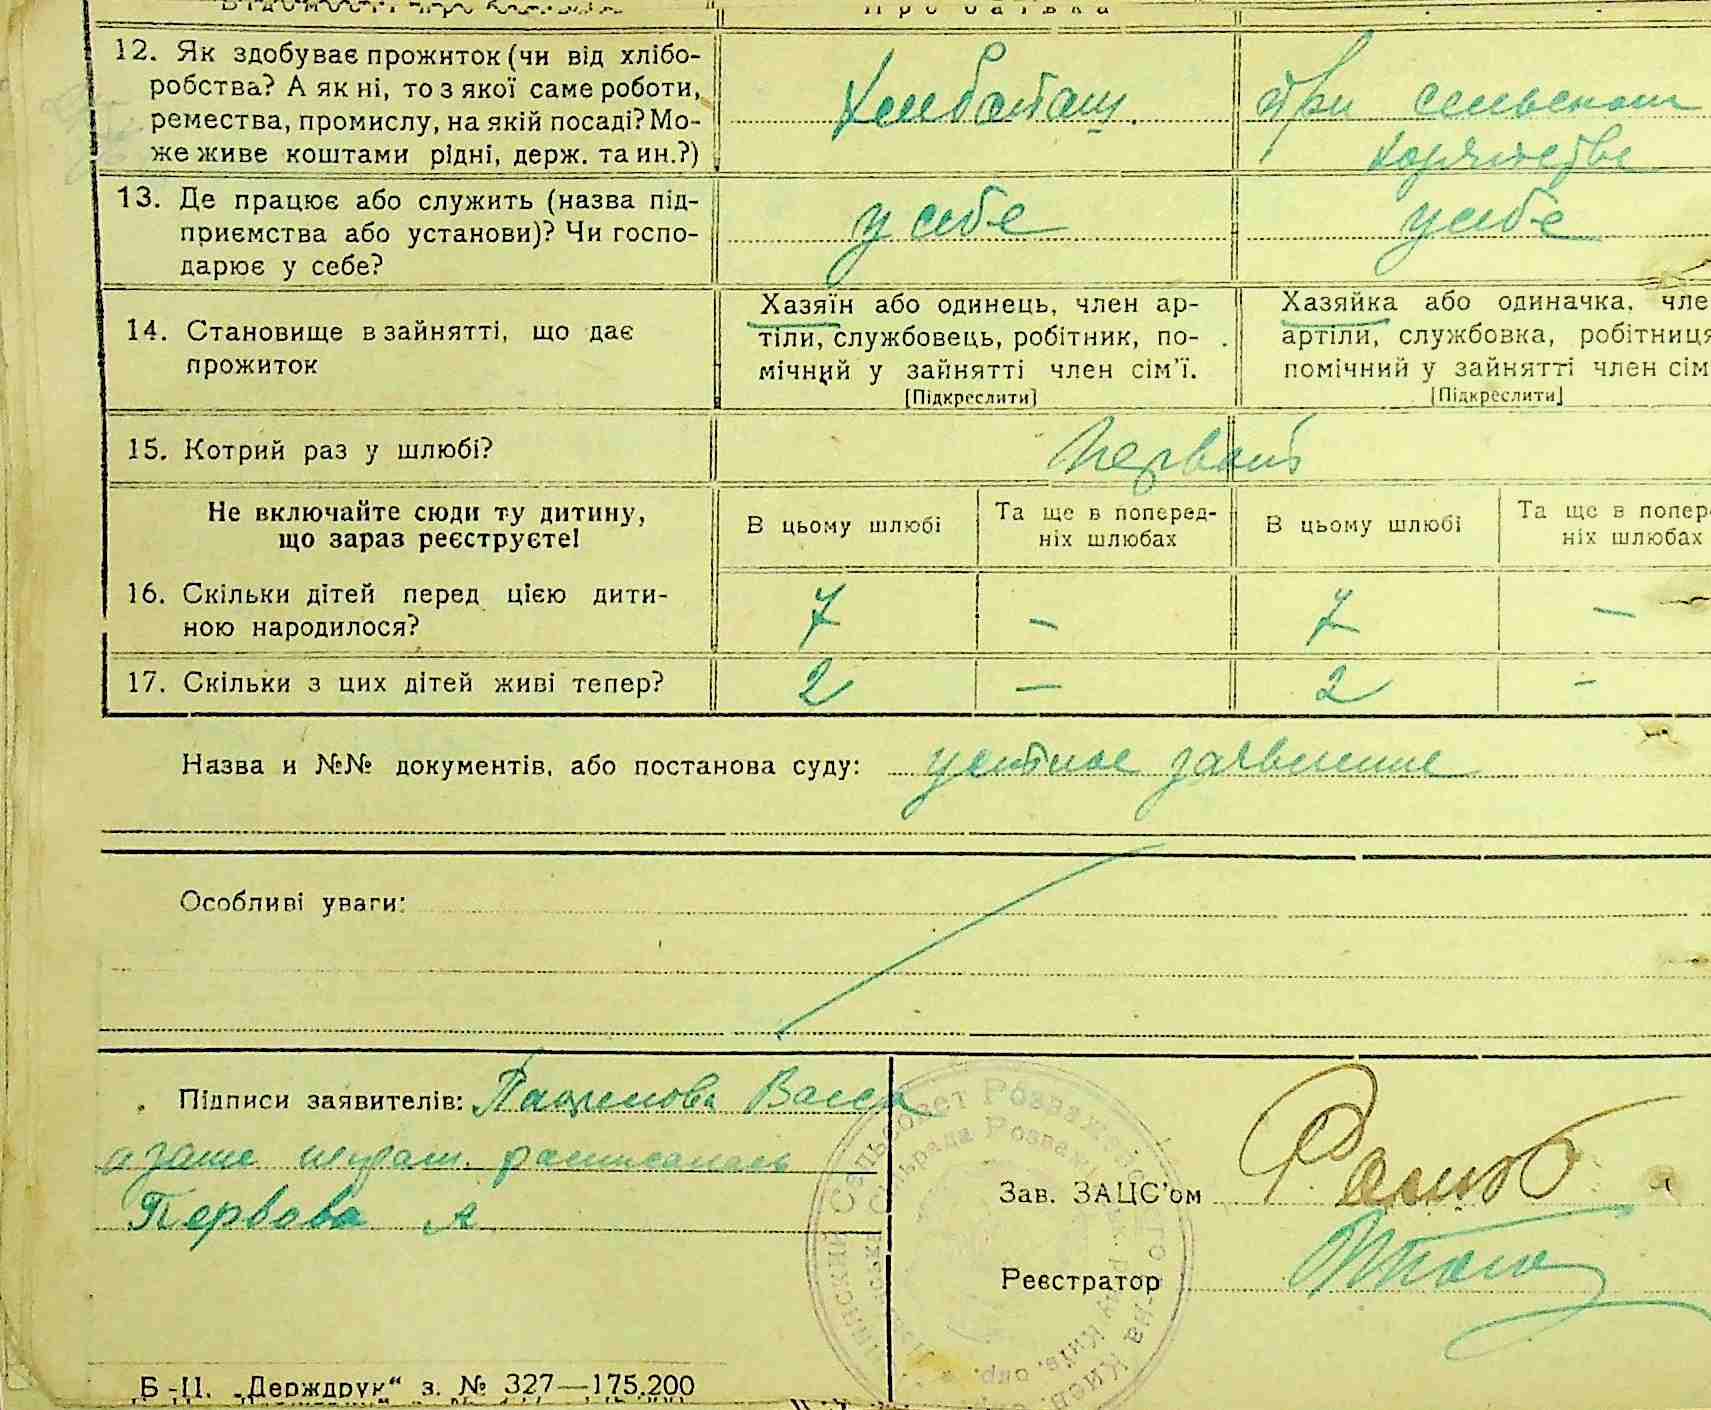 12. Як здобуває прожиток (чи від хлібо-
робства? А як ні, то з якої саме роботи,
ремества, промислу, на якій посаді? Мо-
же живе коштами рідні, держ. та ин.?)
Хлебопаш.
При сельском
хозяйстве
13. Де працює або служить (назва під-
приємства або установи)? Чи госпо-
дарює у себе?
у себе
у себе
14. Становище в зайнятті, що дає
прожиток
Хазяїн або одинець, член ар-
тіли, службовець, робітник, по-
мічний у зайнятті член сім'ї.
[Підкреслити]
Хазяйка або одиначка, чле
артіли, службовка, робітниця
помічний у зайнятті член сім
[Підкреслити]
15. Котрий раз у шлюбі?
Первый
Не включайте сюди ту дитину,
що зараз реєструєте!
В цьому шлюбі
Та ще в поперед-
ніх шлюбах
В цьому шлюбі
Та ще в попер
ніх шлюбах
16. Скільки дітей перед цією дити-
ною народилося?
7 - 7 -
17. Скільки з цих дітей живі тепер?
2 - 2 -
Назва и №№ документів, або постанова суду: устное заявление
Особливі уваги:
Підписи заявителів:
а за нее неграм. расписалась
Первова А
Зав. ЗАЦС'ом
Реєстратор
Б-II. „Держдрук“ з. № 327—175.200